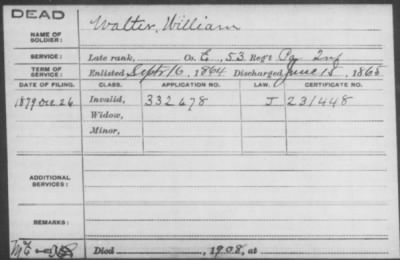 DEAD
NAME OF SOLDIER: Walter, William
SERVICE: Late rank, Co. E, 53 Reg't Pa Inf
TERM OF SERVICE: Enlisted Sept 16, 1864 Discharged June 15, 1865
DATE OF FILING. CLASS. APPLICATION NO. LAW. CERTIFICATE NO.
1879 Dec. 26 Invalid, 332478 J 231448
Widow,
Minor,
ADDITIONAL SERVICES:
REMARKS:
Died , 1908, at